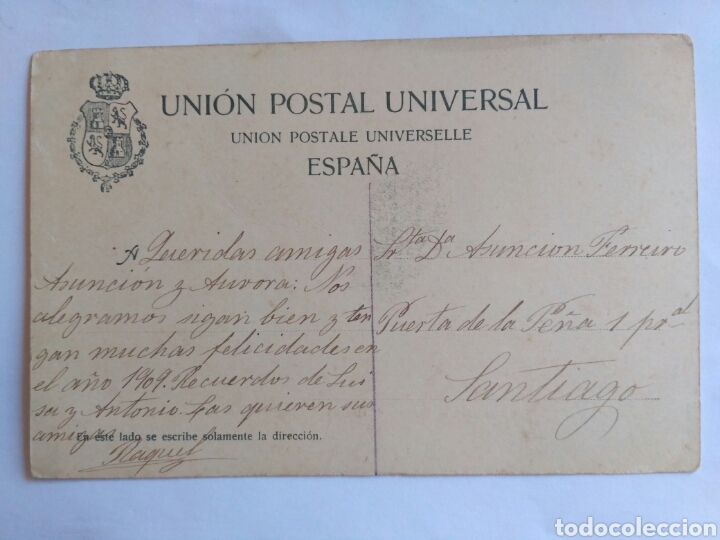 UNIÓN POSTAL UNIVERSAL
UNION POSTALE UNIVERSELLE
ESPAÑA
A Queridas amigas
Asunción y Aurora: Nos
alegramos sigan bien y ten
gan muchas felicidades en
el año 1909. Recuerdos de Lui
sa y Antonio. Las quieren sus
amigas
Raquel
En este lado se escribe solamente la dirección.
Srta Da Asuncion Ferreiro
Puerta de la Peña 1 pral
Santiago
todocoleccion